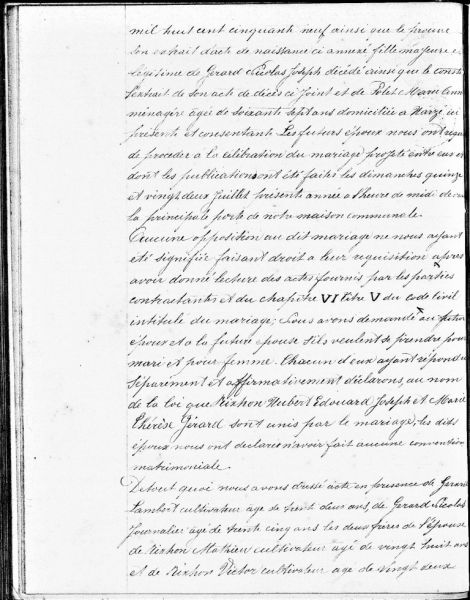 mil huit cent cinquante neuf ainsi que le prouve
son extrait d'acte de naissance ci annexé fille majeure et
légitime de Gerard Nicolas Joseph décédé ainsi que le constate
l'extrait de son acte de décès ci joint et de Polet Marie
ménagère âgée de soixante sept ans domiciliée à Harzé ici
présente et consentante. Les futurs époux nous ont requis
de procéder à la célébration du mariage projeté entre eux et
dont les publications ont été faites les dimanches quinze
et vingt deux juillet présente année a l'heure de midi devant
la principale porte de notre maison communale.
Aucune opposition au dit mariage ne nous ayant
été signifiée faisant droit a leur requisition apres
avoir donné lecture des actes fournis par les parties
contractants et du chapitre VI titre V du code civil
intitulé du mariage; Nous avons demandé au futur
époux et a la future épouse s'ils veulent se prendre pour
mari et pour femme. Chacun d'eux ayant répondu
séparément et affirmativement déclarons, au nom
de la loi que Rixhon Hubert Edouard Joseph et Marie
Thérèse Gérard sont unis par le mariage; les dits
époux nous ont déclaré n'avoir fait aucune convention
matrimoniale.
De tout quoi nous avons dressé acte en présence de Gerard
Lambert cultivateur âgé de trente deux ans, de Gerard Nicolas
journalier âgé de trente cinq ans les deux frères de l'épouse
de Rixhon Mathieu cultivateur âgé de vingt huit ans
et de Rixhon Victor cultivateur âgé de vingt deux